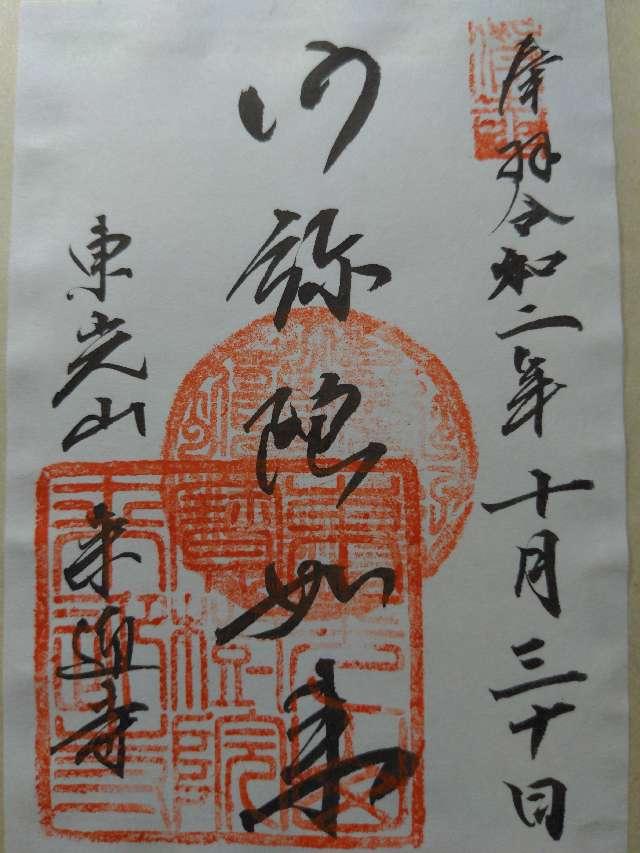 奉拝 令和二年十月三十日
阿弥陀如来
東光山 来迎寺